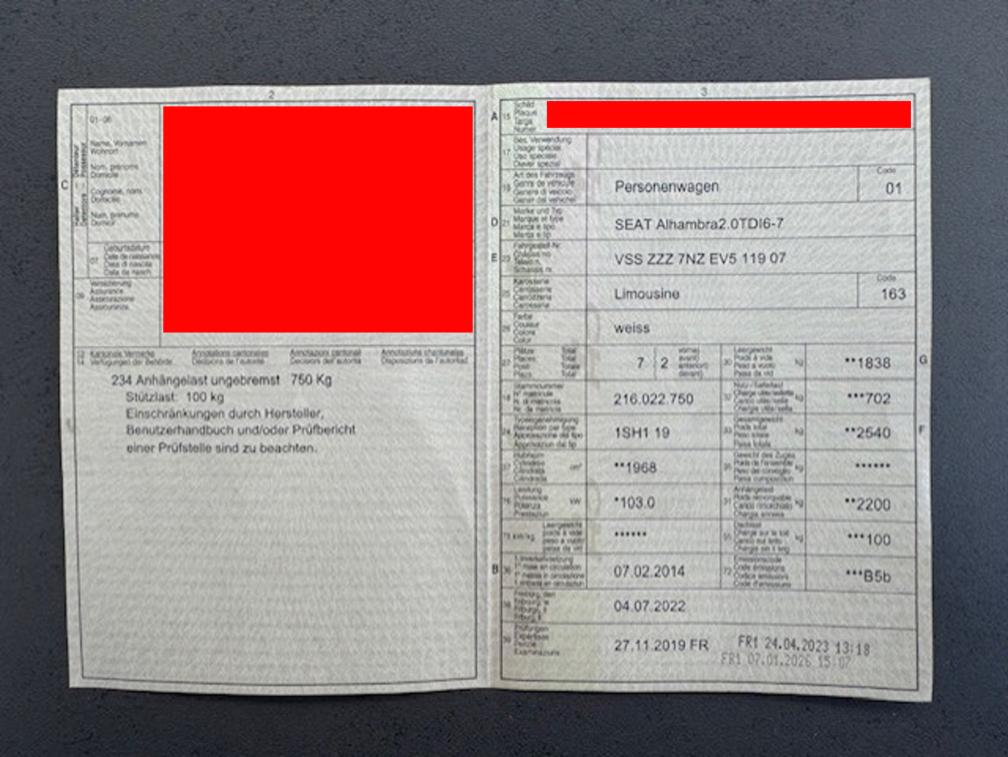 2
01-06
Name, Vornamen
Wohnort
Nom, prénoms
Domicile
Cognome, nomi
Domicilio
Num, prenums
Domicil
C
Geburtsdatum
Date de naissance
Data di nascita
Data da nasch.
07
09
Versicherung
Assurance
Assicurazione
Assicuranza
Kantonale Vermerke
Annotations cantonales
Annotazioni cantonali
Annotaziuns chantunalas
Verfügungen der Behörde
Décisions de l'autorité
Decisioni dell'autorità
Disposiziuns da l'autoritad
234 Anhängelast ungebremst 750 Kg
Stützlast: 100 kg
Einschränkungen durch Hersteller,
Benutzerhandbuch und/oder Prüfbericht
einer Prüfstelle sind zu beachten.
3
A 15 Schild
Plaque
Targa
Numer
17 Bes. Verwendung
Usage spécial
Uso speciale
Diever spezial
19 Art des Fahrzeugs
Genre de véhicule
Genere di veicolo
Gener dal vehichel
Personenwagen
Code
01
D 21 Marke und Typ
Marque et type
Marca e tipo
Marca e tip
SEAT Alhambra2.0TDI6-7
E 23 Fahrgestell-Nr.
Châssis no
Telaio n.
Schassis nr.
VSS ZZZ 7NZ EV5 119 07
25 Karosserie
Carrosserie
Carrozzeria
Carossaria
Limousine
Code
163
26 Farbe
Couleur
Colore
Color
weiss
27 Plätze Total
Places Total
Posti Totale
Plazs Total
7 2
vorne)
avant)
anteriori)
davant)
30 Leergewicht
Poids à vide
Peso a vuoto
Paisa da vid
kg
**1838
G
18 Stammnummer
N° matricule
N. di matricola
Nr. da matricla
216.022.750
32 Nutz-/Sattellast
Charge utile/sellette
Carico utile/sella
Chargia utila/sella
kg
***702
24 Typengenehmigung
Réception par type
Approvazione del tipo
Approvaziun dal tip
1SH1 19
33 Gesamtgewicht
Poids total
Peso totale
Paisa totala
kg
**2540
F
37 Hubraum
Cylindrée
Cilindrata
Cilindrada
cm³
**1968
35 Gewicht des Zuges
Poids de l'ensemble
Peso del convoglio
Paisa cumposiziun
kg
******
76 Leistung
Puissance
Potenza
Prestaziun
kW
*103.0
31 Anhängelast
Poids remorquable
Carico rimorchiato
Chargia annexa
kg
**2200
Leergewicht
poids à vide
peso a vuoto
paisa da vid
******
55 Dachlast
Charge sur le toit
Carico sul tetto
Chargia sin il tetg
kg
***100
B 36 1. Inverkehrsetzung
1re mise en circulation
1a messa in circolazione
07.02.2014
72 Emissionscode
Code émissions
Codice emissioni
Code d'emissiuns
***B5b
38 Freiburg, den
Fribourg, le
04.07.2022
39 Prüfungen
Expertises
Perizie
Examinaziuns
27.11.2019 FR
FR1 24.04.2023 13:18
FR1 07.01.2026 15:07